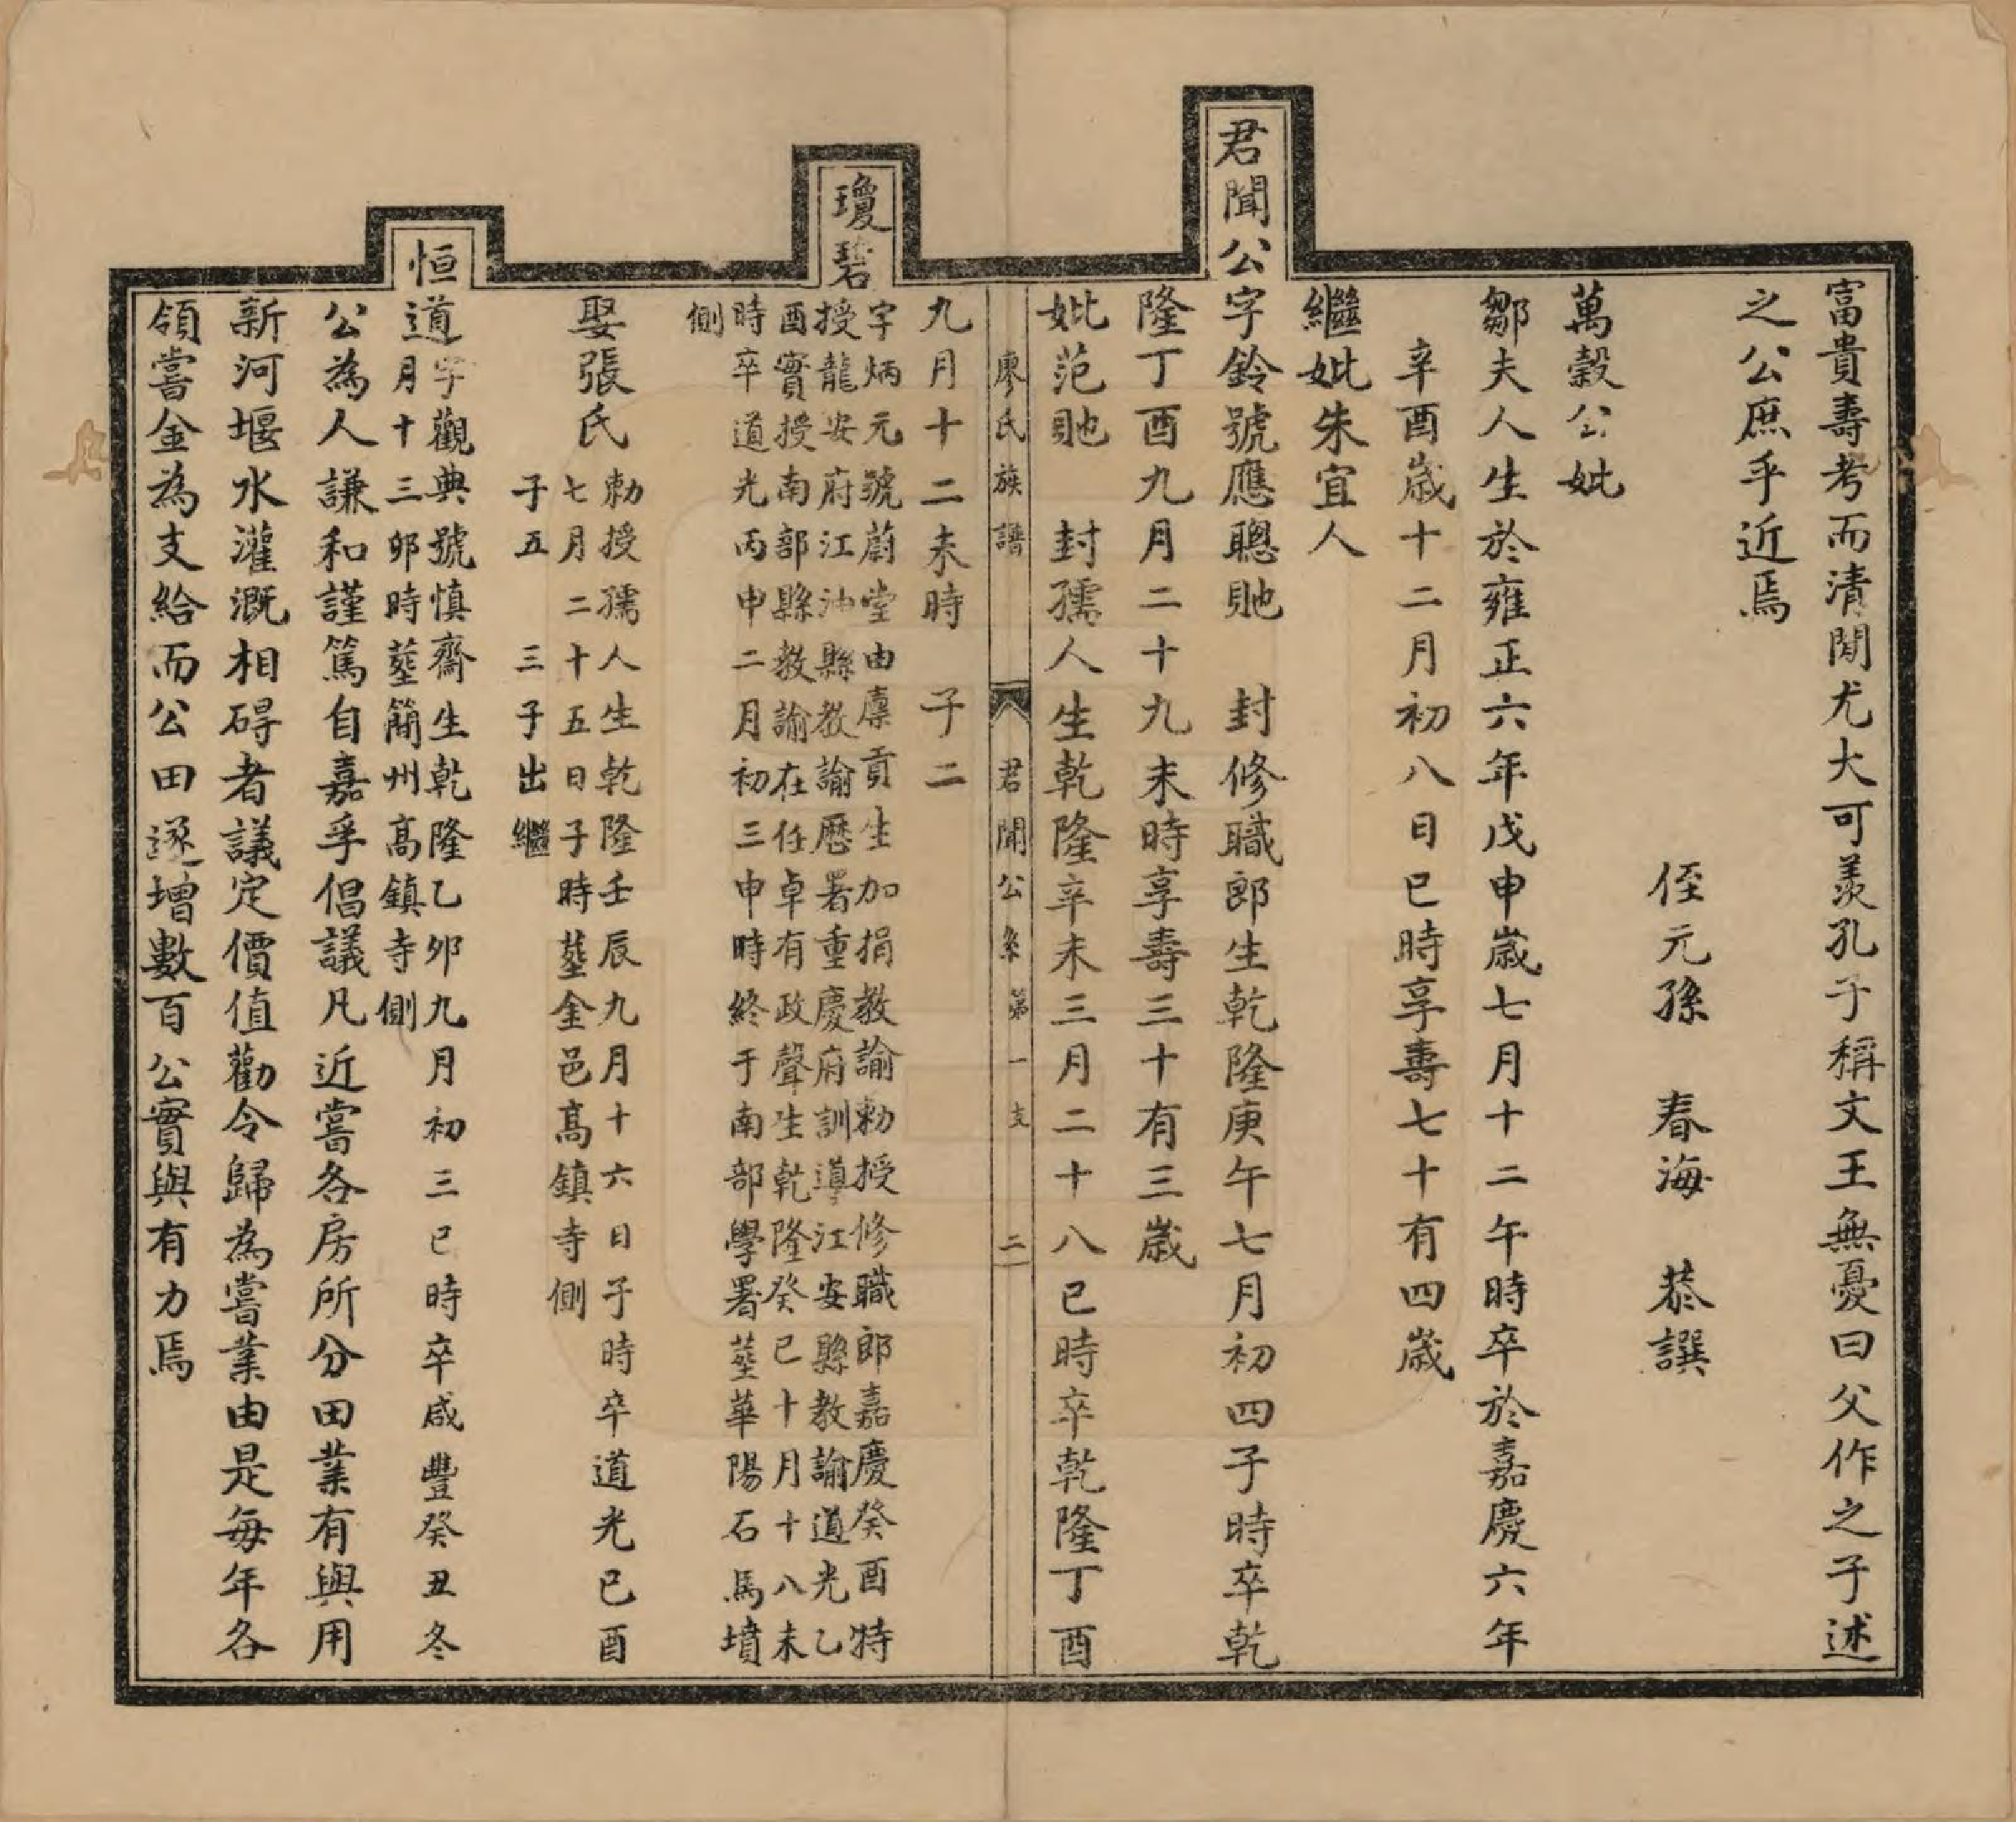 富貴壽考而清閒尤大可羨孔子稱文王無憂曰父作之子述
之公庶乎近焉
侄元孫　春海　恭譔
萬穀公妣
鄒夫人生於雍正六年戊申歲七月十二午時卒於嘉慶六年
辛酉歲十二月初八日巳時享壽七十有四歲
繼妣朱宜人
君聞公字鈴號應聰貤　封修職郎生乾隆庚午七月初四子時卒乾
隆丁酉九月二十九未時享壽三十有三歲
妣范貤　封孺人生乾隆辛未三月二十八巳時卒乾隆丁酉
廖氏族譜　君聞公系第一支　二
九月十二未時　子二
瓊碧
字炳元號蔚堂由廩貢生加捐教諭勅授修職郎嘉慶癸酉特
授龍安府江油縣教諭歷署重慶府訓導江安縣教諭道光乙
酉實授南部縣教諭在任卓有政聲生乾隆癸巳十月十八未
時卒道光丙申二月初三申時終于南部學署塟華陽石馬墳
側
娶張氏
勅授孺人生乾隆壬辰九月十六日子時卒道光己酉
七月二十五日子時塟金邑高鎮寺側
子五　三子出繼
恒道
字觀典號慎齋生乾隆乙卯九月初三巳時卒咸豐癸丑冬
月十三卯時塟簡州高鎮寺側
公為人謙和謹篤自嘉孚倡議凡近嘗各房所分田業有與用
新河堰水灌溉相碍者議定價值勸令歸為嘗業由是每年各
領嘗金為支給而公田遂增數百公實與有力焉